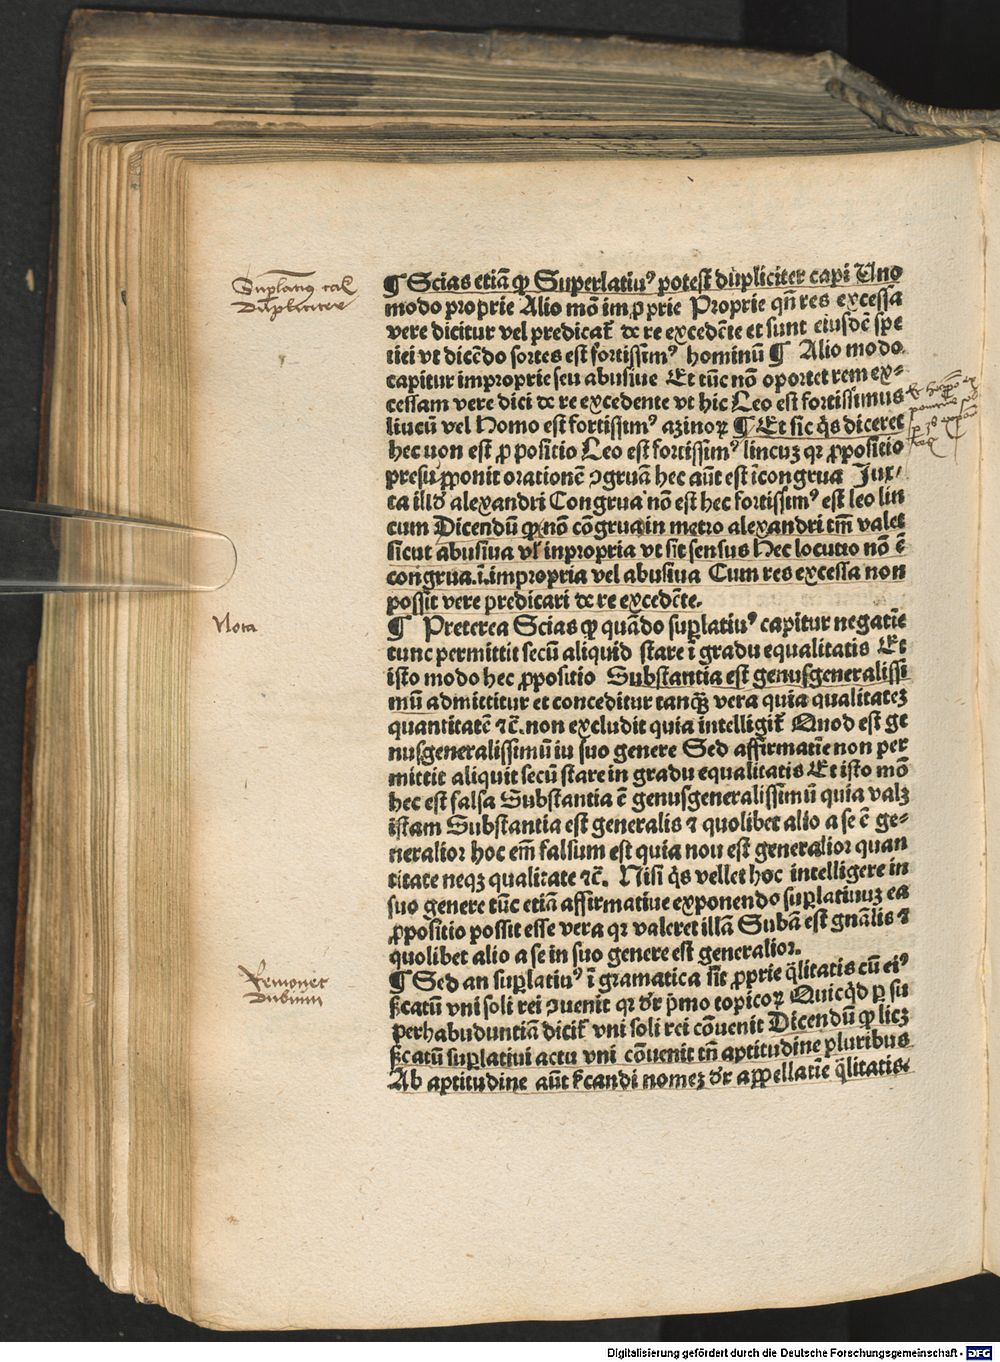 ¶ Scias etiā ꝙ Superlatiuꝰ potest dupliciter capi Uno
modo proprie Alio mō imꝓprie Proprie qn̄ res excessa
vere dicitur vel predicat᷑ de re excedēte et sunt eiusdē spe
tiei vt dicēdo sortes est fortissimꝰ hominū ¶ Alio modo
capitur improprie seu abusiue Et tūc nō oportet rem ex⸗
cessam vere dici de re excedente vt hic Leo est fortissimus
liucū vel Homo est fortissimꝰ azinoꝝ ¶ Et sic q̇s diceret
hec uon est ꝓpositio Leo est fortissimꝰ lincuꝫ qꝛ ꝓpositio
presuꝓponit orationē ↄgruā hec aūt est īcongrua Jux⸗
ta illd̓ alexandri Congrua nō est hec fortissimꝰ est leo lin
cum Dicendū ꝙ nō cōgrua in metro alexandri tm̄ valet
sicut abusiua vl̓ inpropria vt sit sensus Hec locutio nō ē
congrua.i.impropria vel abusiua Cum res excessa non
possit vere predicari de re excedēte.
Nota
¶ Preterea Scias ꝙ quādo suꝑlatiuꝰ capitur negatīe
tunc permittit secū aliquid stare ī gradu equalitatis Et
isto modo hec ꝓpositio Substantia est genusgeneralissi
mū admittitur et conceditur tanqꝫ̄ vera quia qualitateꝫ
quantitatē ⁊c̄. non excludit quia intelligit᷑ Quod est ge
nusgeneralissimū iu suo genere Sed affirmatīe non per
mittit aliquit secū stare in gradu equalitatis Et isto mō
hec est falsa Substantia ē genusgeneralissimū quia valꝫ
istam Substantia est generalis ⁊ quolibet alio a se ē ge⸗
neralior hoc em̄ falsum est quia nou est generalior quan
titate neqꝫ qualitate ⁊c̄. Nisi q̇s vellet hoc intelligere in
suo genere tūc etiā affirmatiue exponendo suꝑlatiuuꝫ ea
ꝓpositio possit esse vera qꝛ valeret illā Subā est gn̄alis ⁊
quolibet alio a se in suo genere est generalior.
Remouet
dubium
¶ Sed an suꝑlatiuꝰ ī gramatica sit ꝓprie q̄litatis cū eiꝰ
ſꝭcatū vni soli rei ↄuenit qꝛ dr̄ pͥmo topicoꝝ Quicq̇d ꝑ su
perhabuduntiā dicit᷑ vni soli rei cōuenit Dicendū ꝙ licꝫ
ſꝭcatū suꝑlatiui actu vni cōuenit tn̄ aptitudine pluribus
Ab aptitudine aūt ſꝭcandi nomeꝫ dr̄ apꝑellatīe q̄litatis.
Digitalisierung gefördert durch die Deutsche Forschungsgemeinschaft - DFG